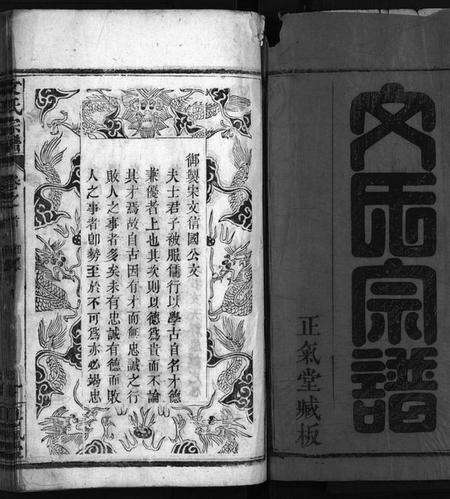 文氏宗譜
正氣堂藏板
御製宋文信國公文
夫士君子被服儒行以學古自名才德
兼優者上也其次則以德為貴而不論
其才焉故自古因有才而無忠誠之行
敗人之事者多矣未有忠誠有德而敗
人之事者即勢至於不可為亦必竭忠
氏宗譜